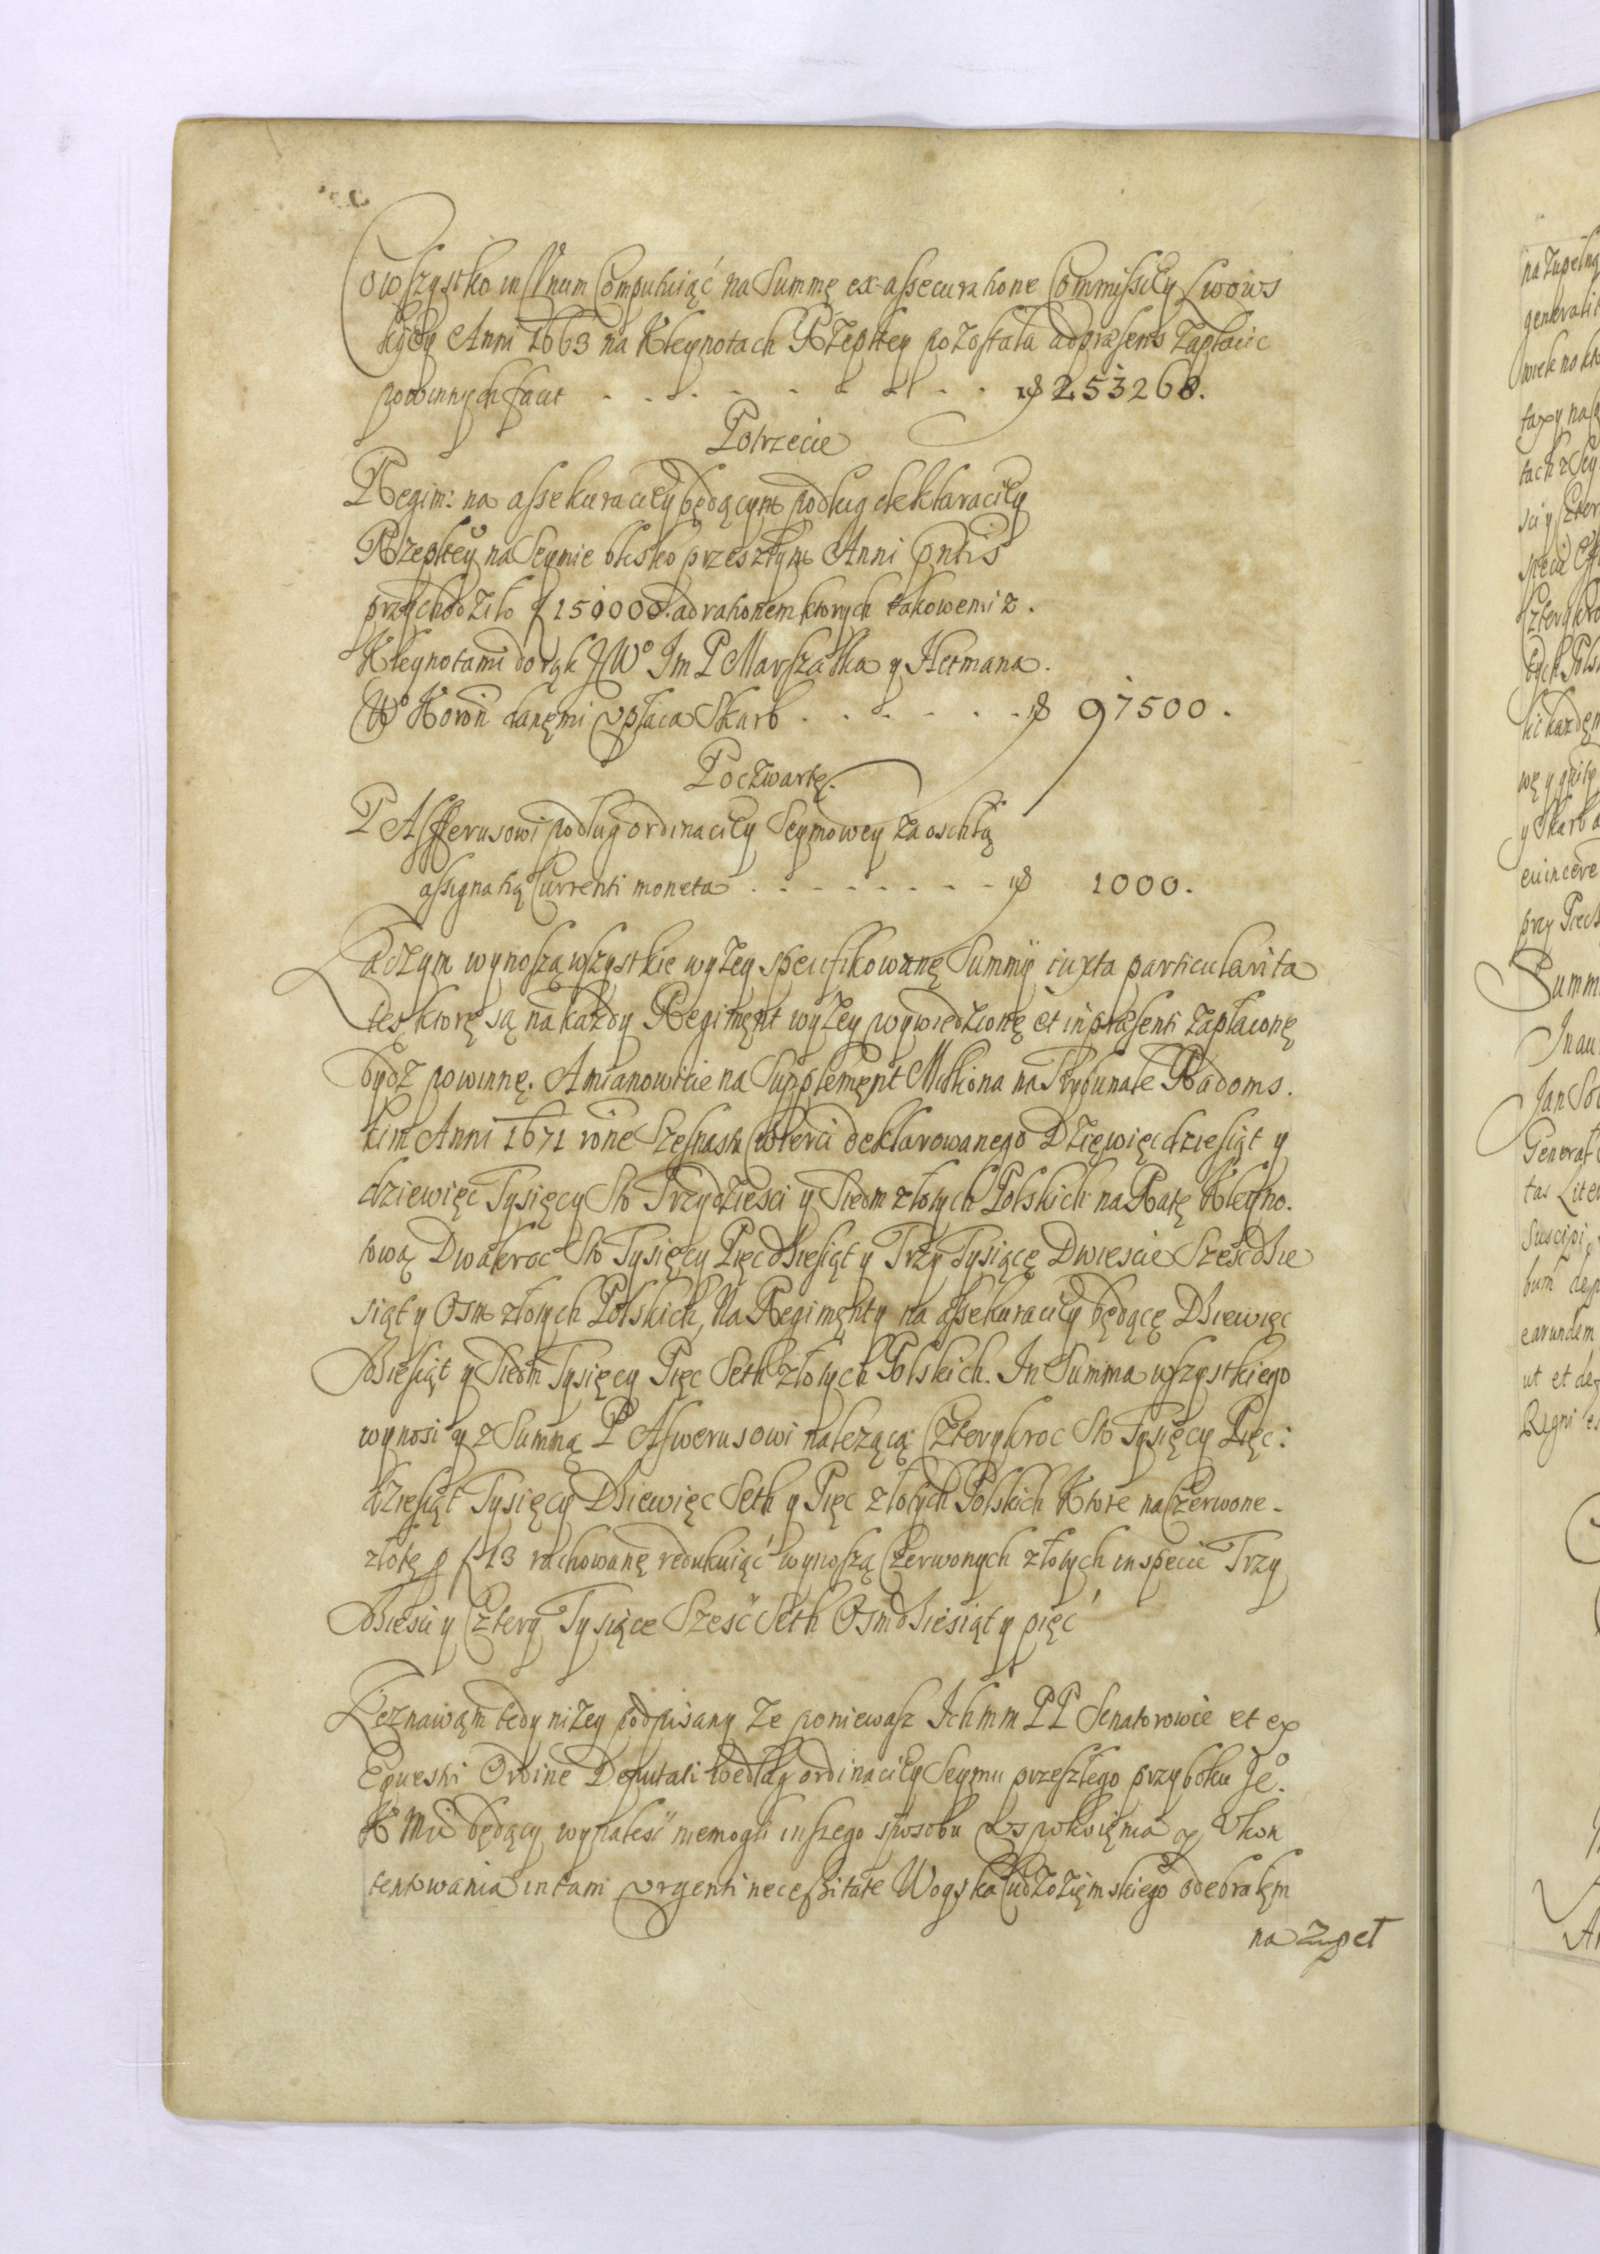 Co wszystko in Unum Computuiąć na Summę ex assecuratione Commyssiey Lwows
kiey Anni 1663 na Kleynotach Rzeptey pozostała ad præsens zapłacic
powinnych facit . . . . . . . . . 253268.
Potrzecie
Regim: na assekuraciey będącym podług deklaraciey
Rzeptey na Seymie blisko przeszłym Anni pntis
przychodziło f 150000. ad rationem ktorych takowemi z.
Kleynotami do rąk JWo Im P Marszałka y Hetmana.
Wo Koron danęmi vpłaca Skarb . . . . . . 97500.
Poczwartę.
P Asswerusowi podług ordinaciey Seymowey za oschłą
assignatią Currenti moneta . . . . . . . . 1000.
Zaczym wynoszą wszystkie wyzey specifikowanę Summy iuxta particularita
tes, ktorę są na kazdy Regimęnt wyzey wywiedzionę et in præsenti zapłaconę
bydz powinnę. A mianowicie na Supplemęnt Miliona na Trybunale Radoms.
kim Anni 1671 rone Szesnastu Cwierci deklarowanego Dzięwięcdziesiąt y
dziewięc Tysięcy Sto Trzydziesci y Siedm złotych Polskich na Ratę Kleyno.
tową Dwakroc Sto Tysięcy Pięcdziesiąt y Trzy Tysiącę Dwiescie Szescdzie
siąt y Osm złotych Polskich, Na Regimęnty na assekuraciey będącę Dziewięc
dziesiąt y Siedm Tysięcy Pięc Seth złotych Polskich. In Summa wszystkiego
wynosi y z Summą P Aswerusowi nalezącą Czterykroc Sto Tysięcy Pięc:
dziesiąt Tysięcy Dziewięc Seth y Pięc złotych Polskich Ktore na Czerwone-
złotę p f 13 rachowanę redukuiąć wynoszą Czerwonych złotych in specie Trzy
dziesci y Cztery Tysiące Szesć Seth Osmdziesiąt y pięć
Zeznawąm tedy nizey podpisany ze poniewasz Ichmm PP Senatorowie et ex
Equestri Ordine Deputati wedłag ordinaciey Seymu przeszłego przy boku Je.
K Mci będący wynalesć niemogli inszego sposobu Uspokoięnia y Ukon
tentowania in tam vrgenti necessitate Woyska Cudzoziemskiego odebrałęm
na zupeł